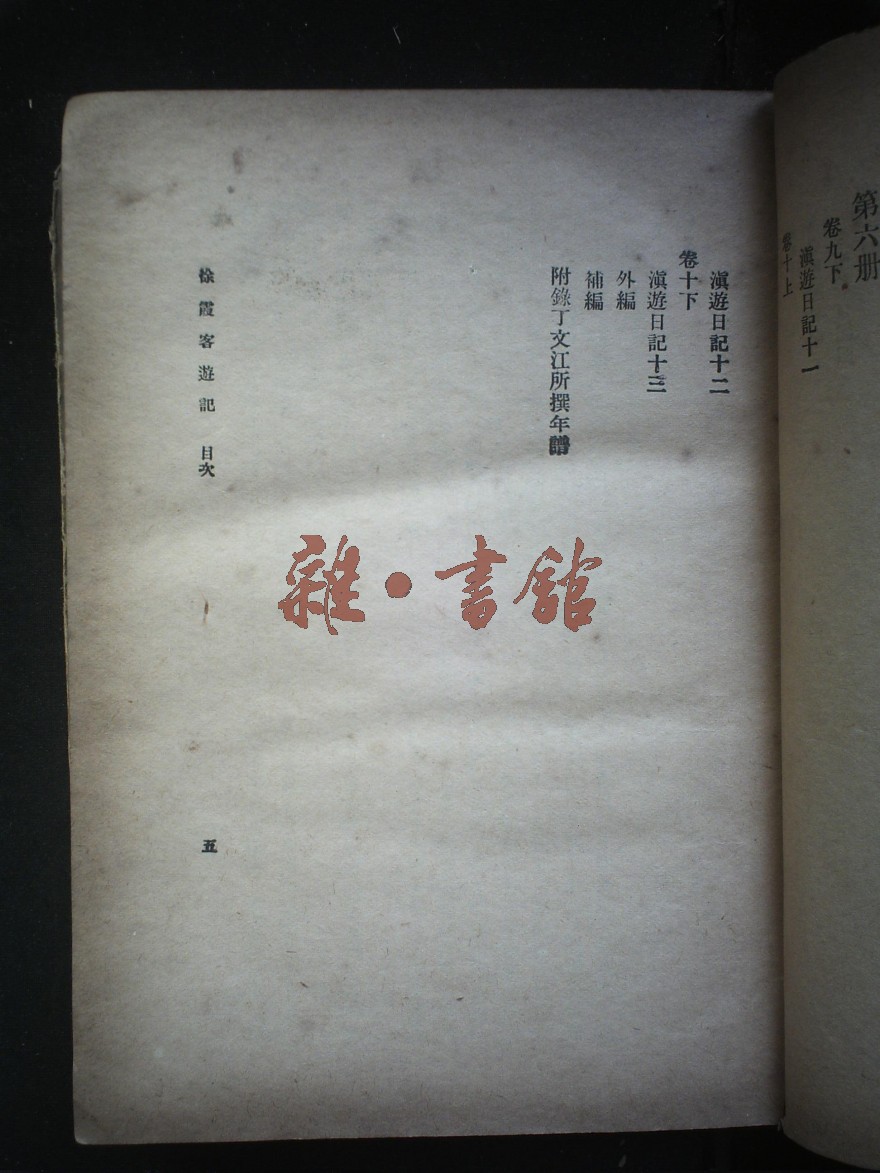 第六册
卷九下
滇遊日記十一
卷十上
滇遊日記十二
卷十下
滇遊日記十三
外編
補編
附錄丁文江所撰年譜
徐霞客遊記 目次
五
雜·書館